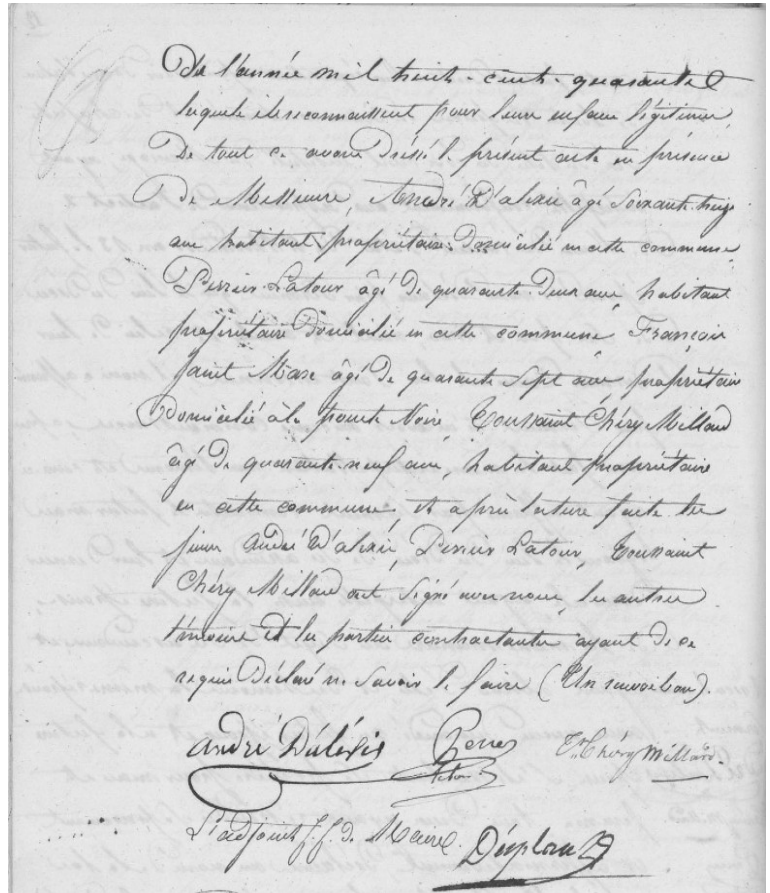 De l'année mil huit-cent-quarante
lesquels ils reconnaissent pour leurs enfans légitimes
De tout ce avons Dressé le présent acte en présence
De Messieurs, André D'alexis âgé Soixante-treize
ans habitant propriétaire Domicilié en cette commune,
Perrier Latour âgé De quarante-Deux ans, habitant
propriétaire Domicilié en cette commune, François
Saint Marc âgé De quarante Sept ans propriétaire
Domicilié à la pointe Noire, Toussaint Chéry Millard
âgé De quarante-neuf ans, habitant propriétaire
en cette commune, et après lecture faite les
sieurs André D'alexis, Perrier Latour, Toussaint
Chéry Millard ont Signé avec nous, les autres
témoins Et les parties contractantes ayant De ce
requis Déclaré ne Savoir le faire (Un renvoi bon).
André D'alexis T. Chéry Millard.
L'adjoint f.f. de Maire.